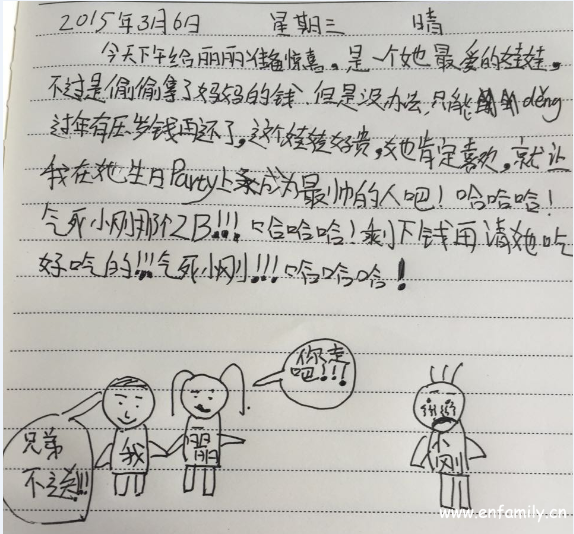 2015年3月6日 星期三 晴
今天下午给丽丽准备惊喜,是一个她最爱的娃娃,
不过是偷偷拿了妈妈的钱 但是没办法,只能 děng
过年有压岁钱再还了,这个娃娃好贵,她肯定喜欢,就让
我在她生日Party上成为最帅的人吧!哈哈哈!
气死小刚那个2B!!!哈哈哈!剩下钱再请她吃
好吃的!!!气死小刚!!!哈哈哈!
你走
吧!!!
兄弟
不送!!!
我
丽丽
小刚
www.enfamily.cn